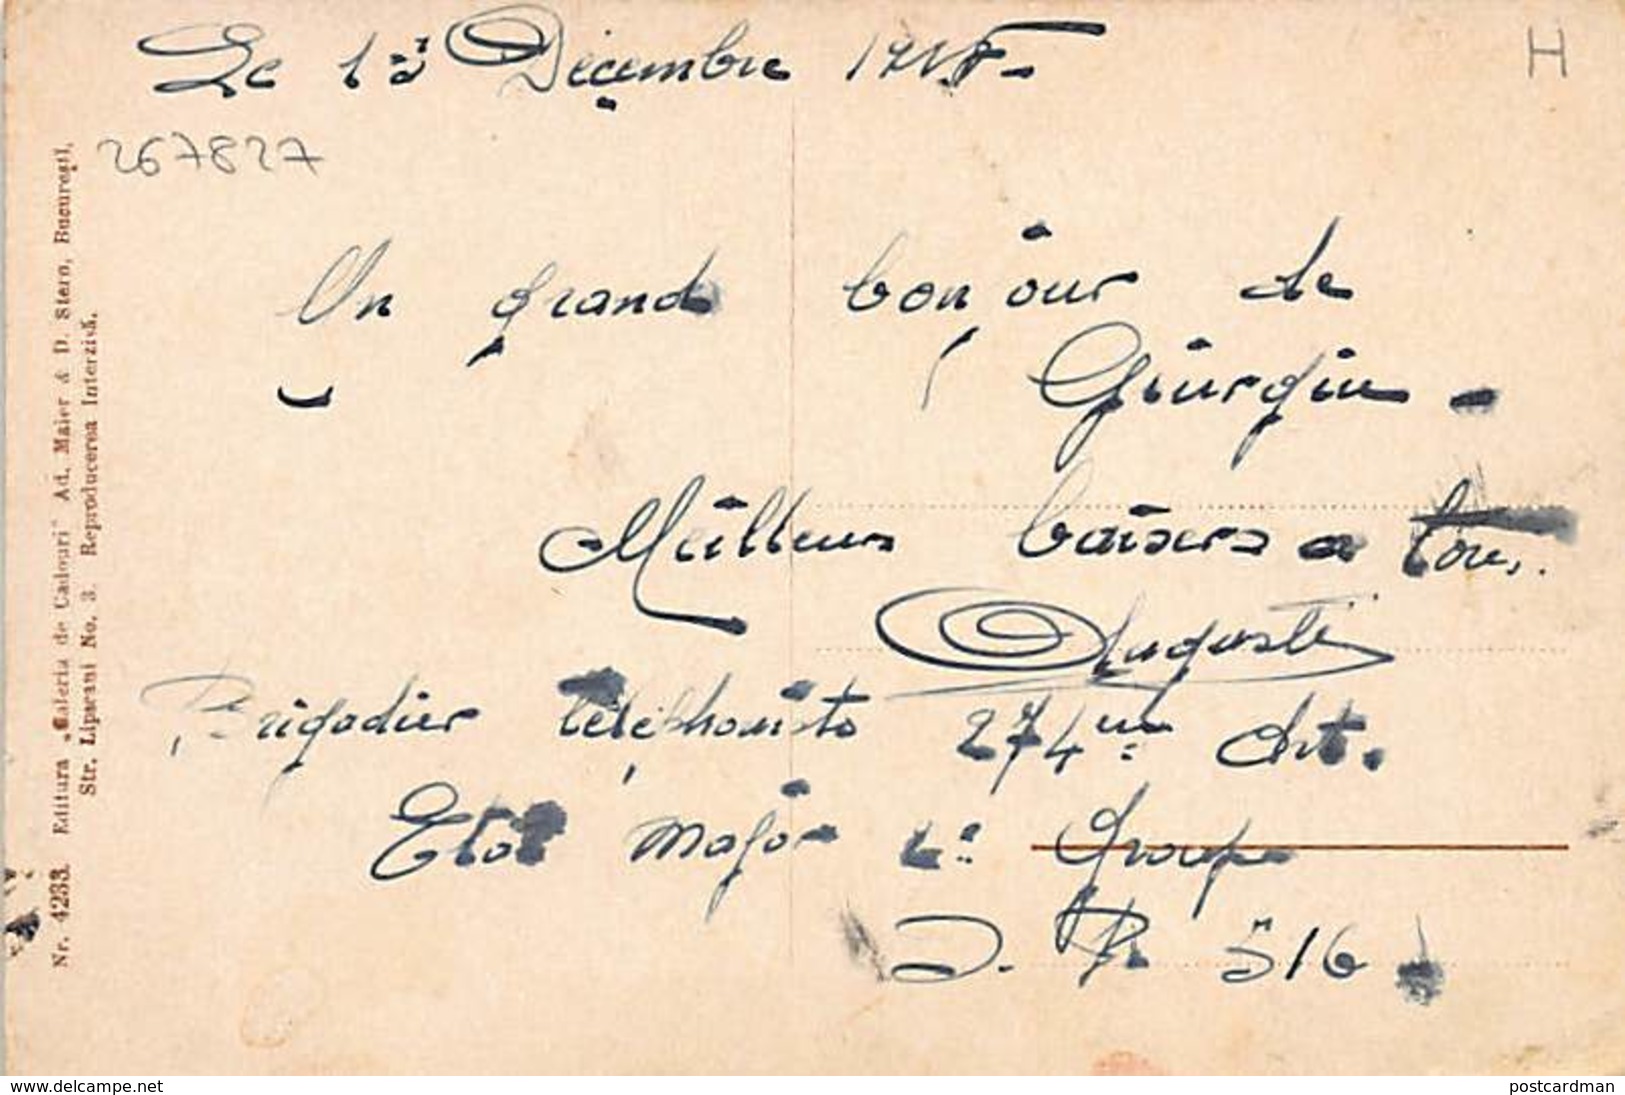 Le 13 Décembre 1918-
H
267827
Un grand bonjour de
Giurgiu -
Meilleurs baisers a tous.
Auguste
Brigadier téléphoniste 274me Art.
Etat major 2e Groupe
S. P. 516.
Nr. 4233. Editura „Galeria de Cadouri" Ad. Maier & D. Stern, Bucureşti.
Str. Lipscani No. 3. Reproducerea Interzisă.
www.delcampe.net
postcardman